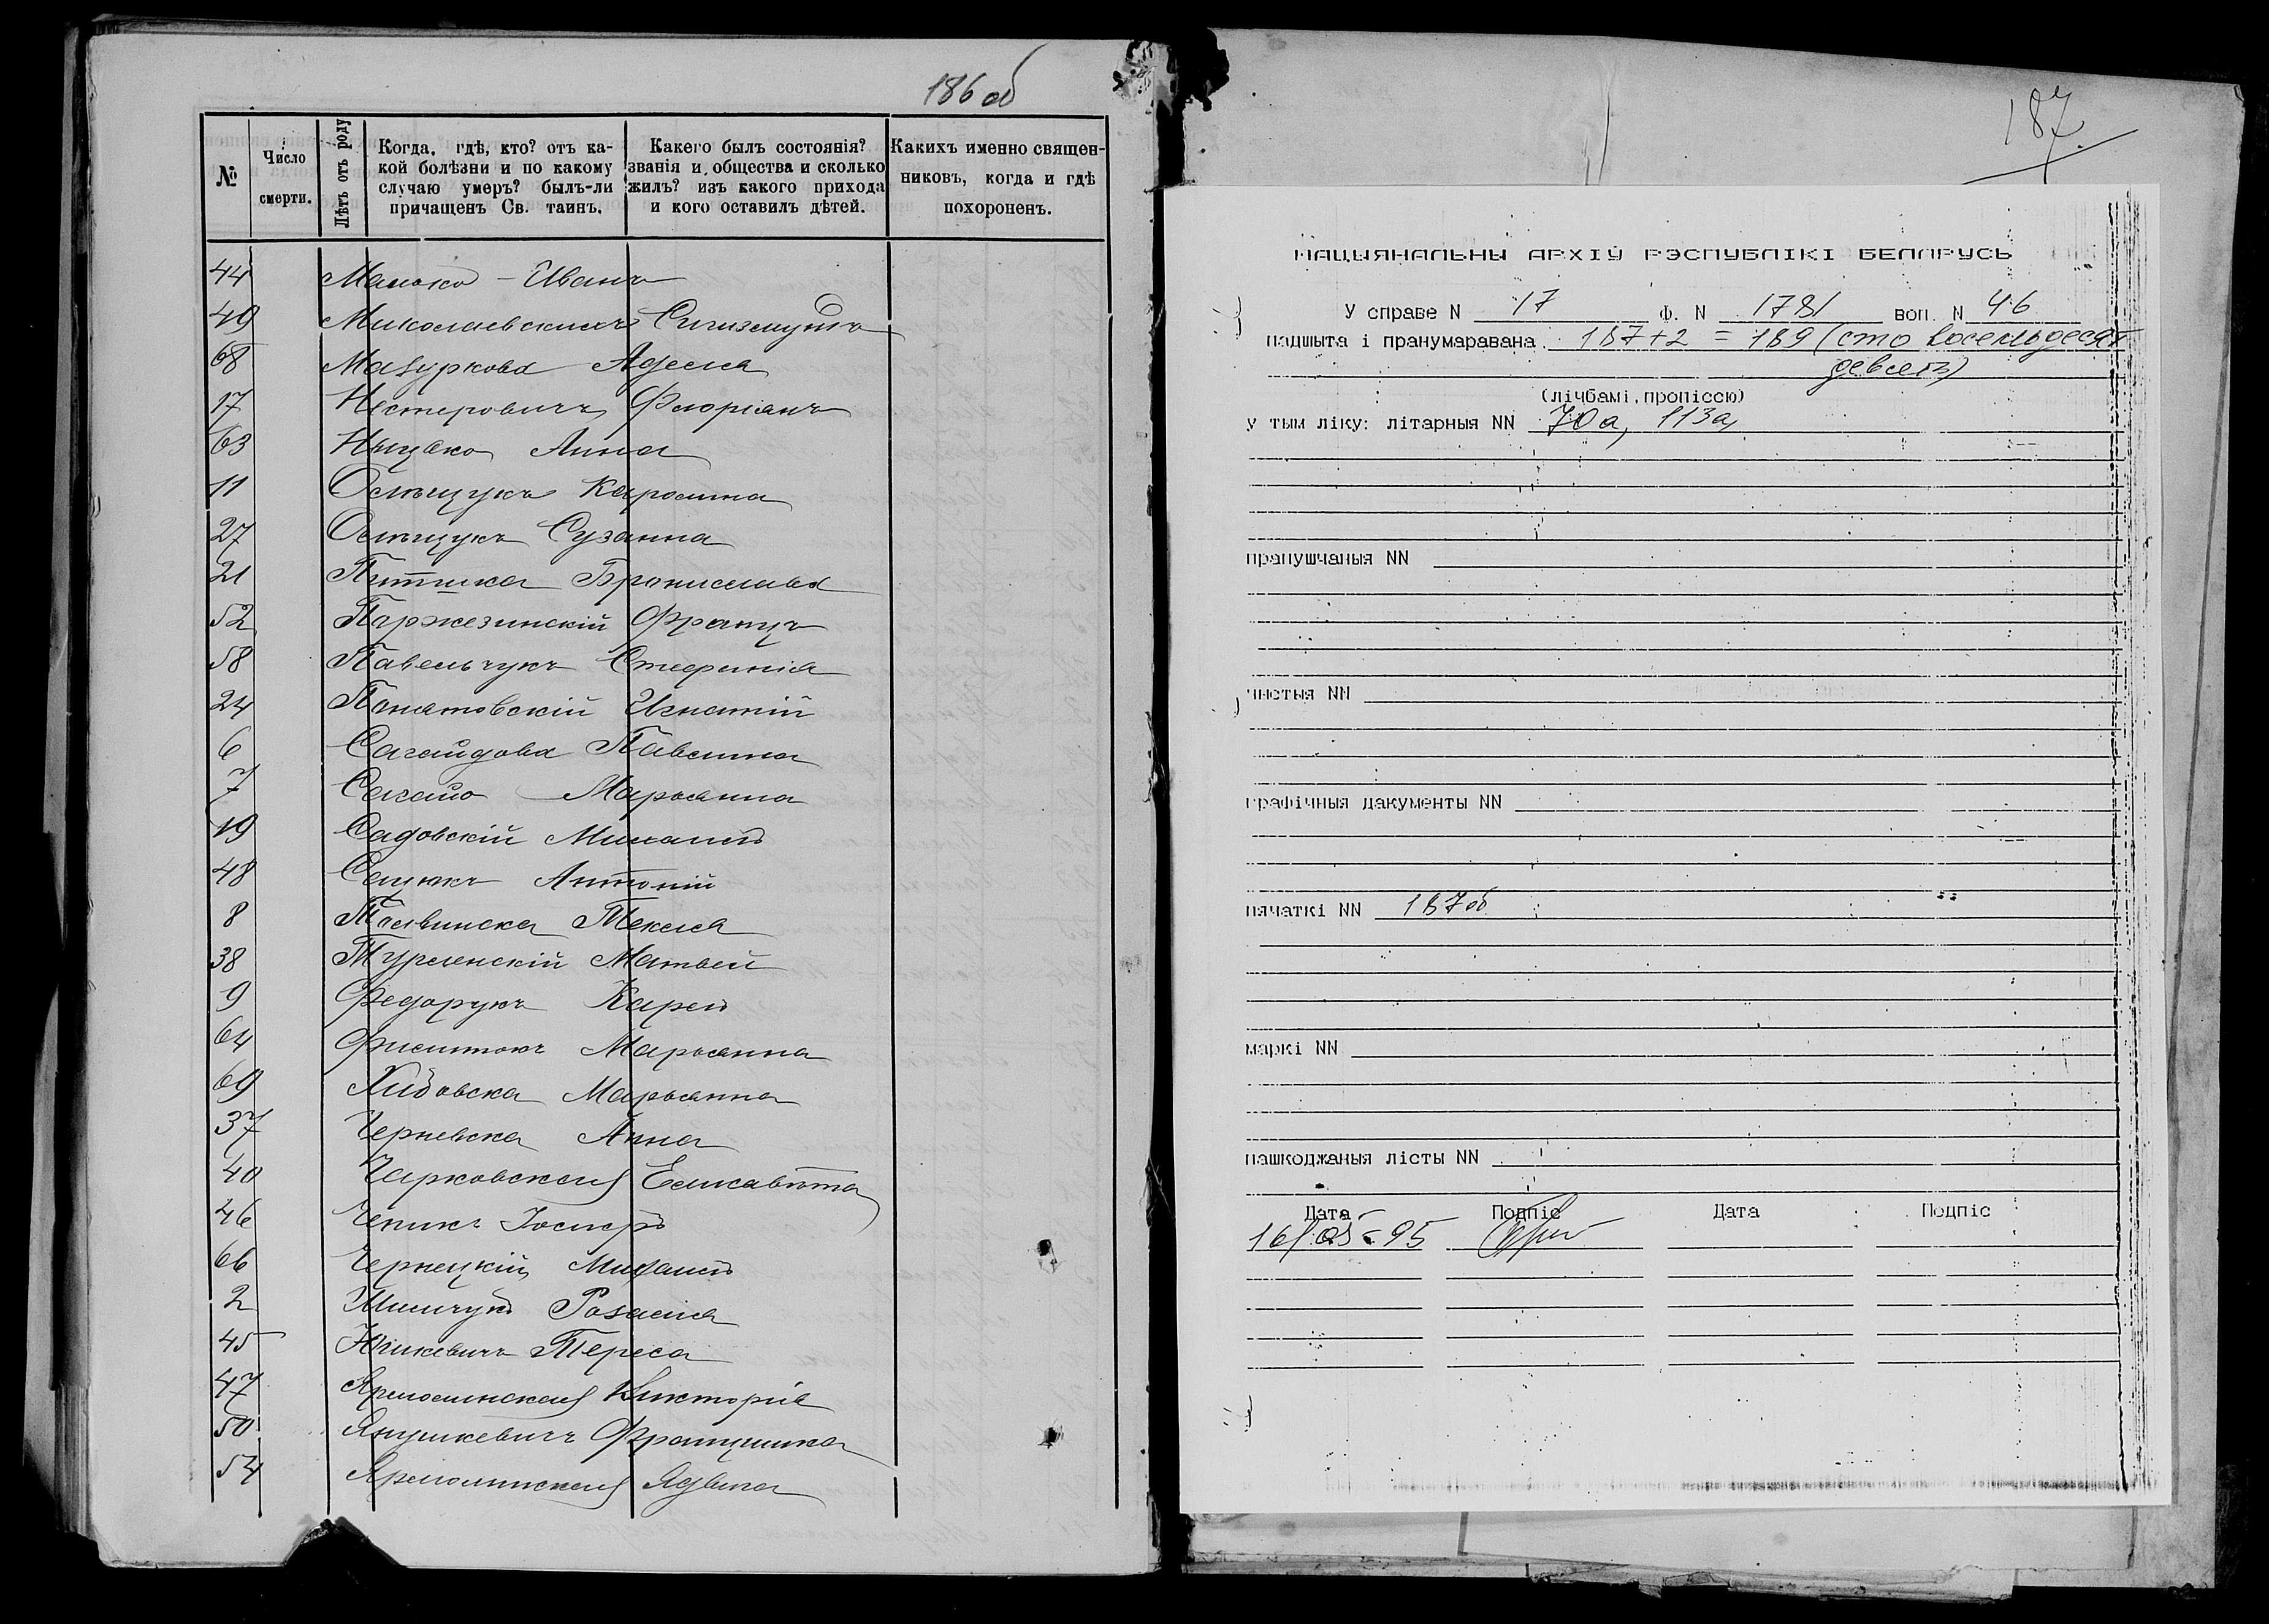 186 об
№
Число смерти.
Лѣтъ отъ роду
Когда, гдѣ, кто? отъ ка-
кой болѣзни и по какому
случаю умеръ? былъ-ли
причащенъ Св. таинъ.
Какего былъ состоянія?
званія и общества и сколько
жилъ? изъ какого прихода
и кого оставилъ дѣтей.
Какихъ именно священ-
никовъ, когда и гдѣ
похороненъ.
44 Манько - Иванъ
49 Николаевскихъ Сигизмундъ
68 Мазуркова Аделя
17 Нестеровичъ Флоріанъ
63 Анна
11 Каролина
27 Сузанна
21 Бронислава
52 Паржезинскій Францъ
58 Павельчукъ Стефанія
24 Понятовскій Игнатій
6 Сагайдова Павлина
7 Сагайло Марьянна
19 Садовскій Михаилъ
48 Сацукъ Антоній
8 Талвинска Текля
38 Матвей
9 Федорукъ Карлъ
64 Филитокъ Марьянна
69 Марьянна
37 Черневска Анна
40 Чарковская Елисавѣта
46 Чепикъ Іосифъ
66 Чернецкій Михаилъ
2 Шимчукъ Розалія
45 Юшкевичъ Тереса
47 Ярмолинская Викторія
50 Янушкевичъ Францишка
54 Ярмолинская Ядвига
187
НАЦЫЯНАЛЬНЫ АРХІЎ РЭСПУБЛІКІ БЕЛАРУСЬ
У справе N 17 Ф. N 1781 воп. N 46
падшыта і пранумаравана 187+2 = 189 (сто восемьдесят
девять)
(лічбамі, пропіссю)
у тым ліку: літарныя NN 70а, 113а,
прапушчаныя NN
чыстыя NN
графічныя дакументы NN
пячаткі NN 187об
маркі NN
пашкоджаныя лісты NN
Дата Подпіс Дата Подпіс
16/05-95